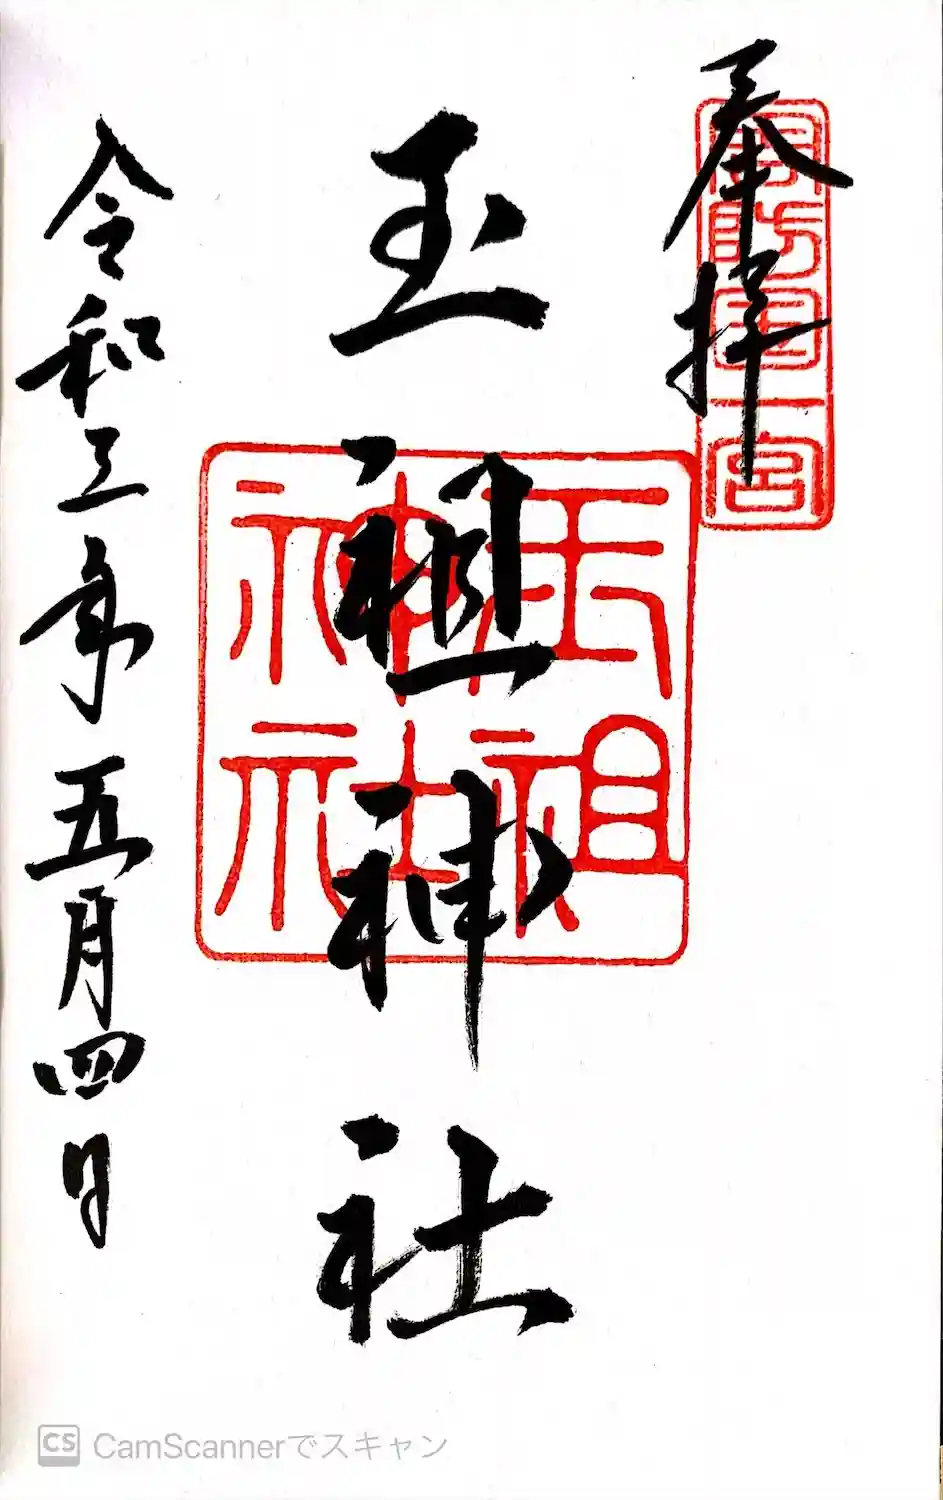 奉拝
周防国一宮
玉祖神社
玉祖
神社
令和三年五月四日
CS CamScannerでスキャン